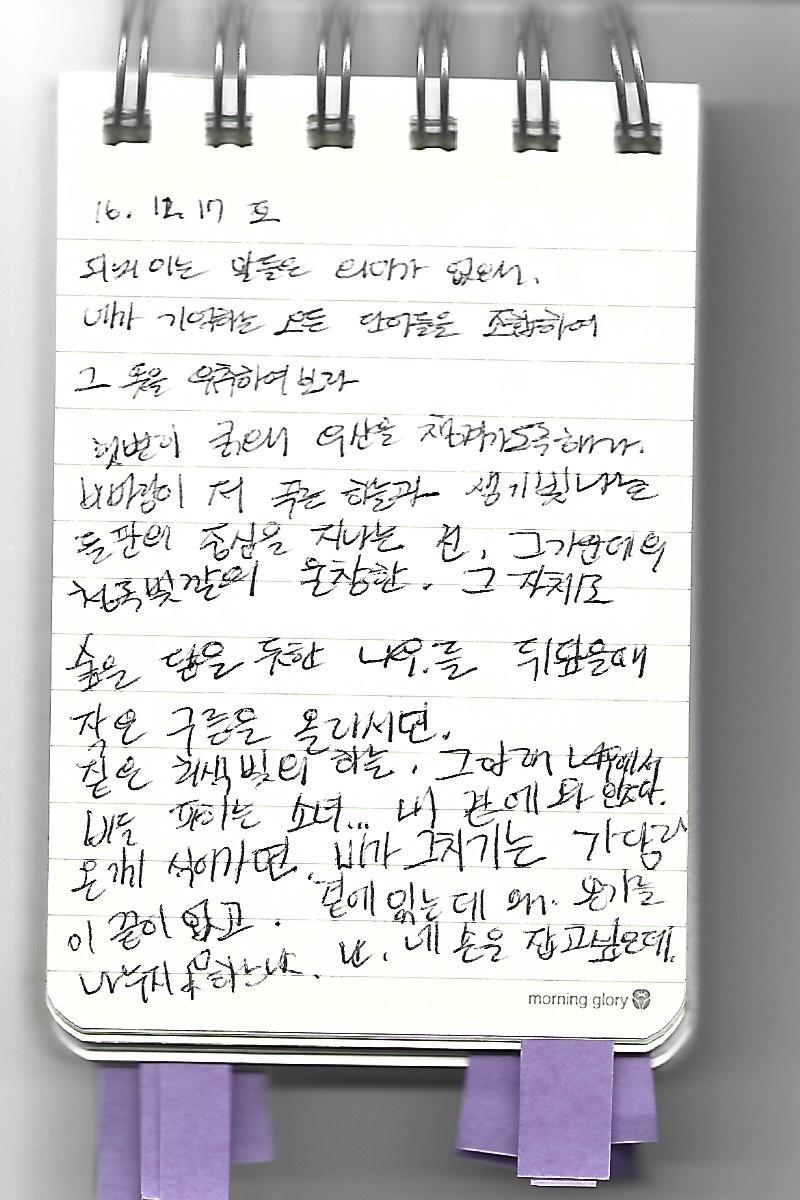 16. 12. 17 토
되뇌이는 말들은 의미가 없으니.
네가 기억하는 모든 단어들을 조합하여
그 뜻을 유추하여보라
햇빛이 굵으니 우산을 챙겨가도록해라.
비바람이 저 죽는 하늘과 생기빛나는
들판의 중심을 지나는 선, 그가운데의
청록빛깔의 울창한. 그 자체로
숲을 담을 듯한 나무.를 뒤덮을때
작은 구름을 올리시면.
짙은 회색빛의 하늘. 그아래 나무에서
비를 피하는 소녀... 내 곁에 와 앉았다.
온기가 식어가면. 비가 그치기는 가당
이 끝이 않고. 곁에 있는데 왜. 온기를
나누지 못하느냐. 난. 네 손을 잡고싶은데.
morning glory